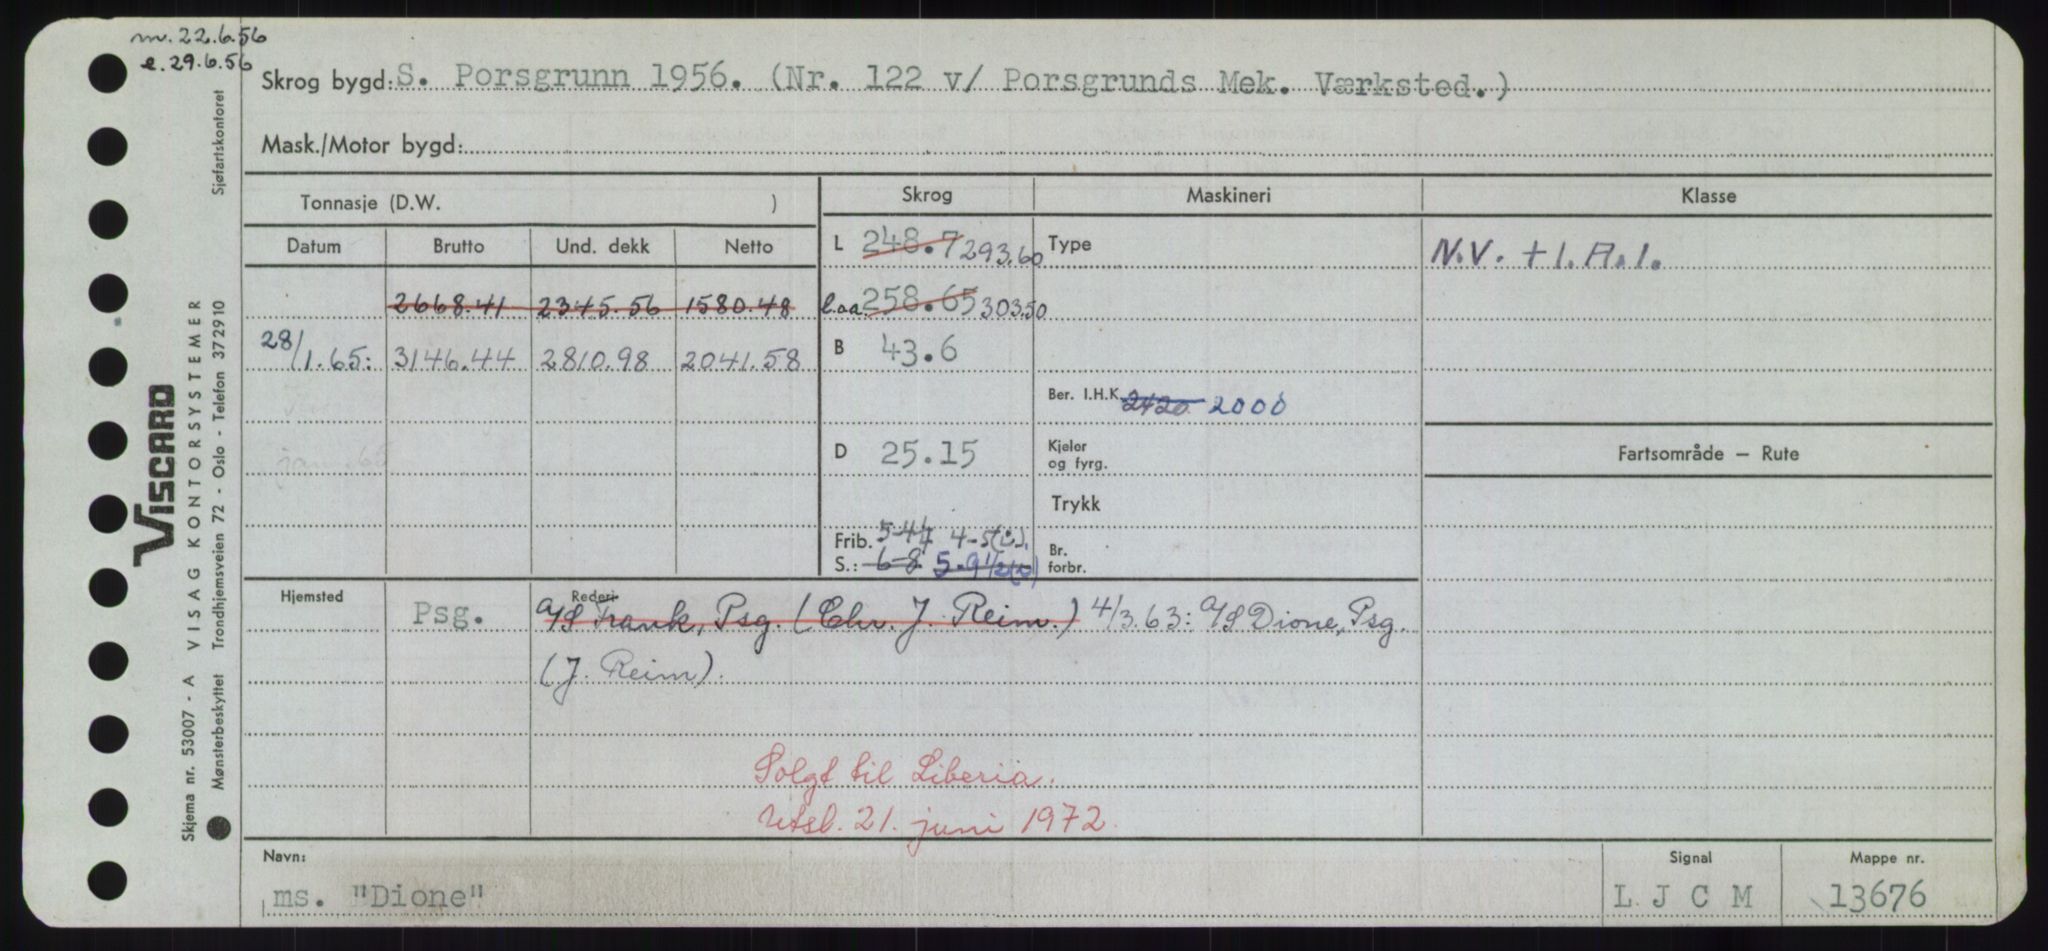 m. 22.6.56
e. 29.6.56
Skrog bygd: S. Porsgrunn 1956. (Nr. 122 v/ Porsgrunds Mek. Værksted.)
Mask./Motor bygd:
Tonnasje (D.W. )
Skrog Maskineri Klasse
Datum Brutto Und. dekk Netto
L 248.7 293.60 Type N.V. +1.A.1.
2668.41 2345.56 1580.48 l.aa. 258.65 303.50
28/1.65: 3146.44 2810.98 2041.58 B 43.6
Ber. I.H.K. 2420 2000
janu 65 D 25.15 Kjeler
og fyrg.
Fartsområde — Rute
Trykk
Frib. 5-4 4-5
S.: 6-8 5-9½ Br.
forbr.
Hjemsted Rederi
Psg. A/S Frank, Psg. (Chr. J. Reim.) 4/3.63: A/S Dione, Psg.
(J. Reim).
Solgt til Liberia.
Utsl. 21. juni 1972.
Navn: Signal Mappe nr.
ms. "Dione" L J C M 13676
VISCARD
Skjema nr. 53007 - A VISAG KONTORSYSTEMER
Mønsterbeskyttet Trondhjemsveien 72 - Oslo - Telefon 372910 Sjøfartskontoret